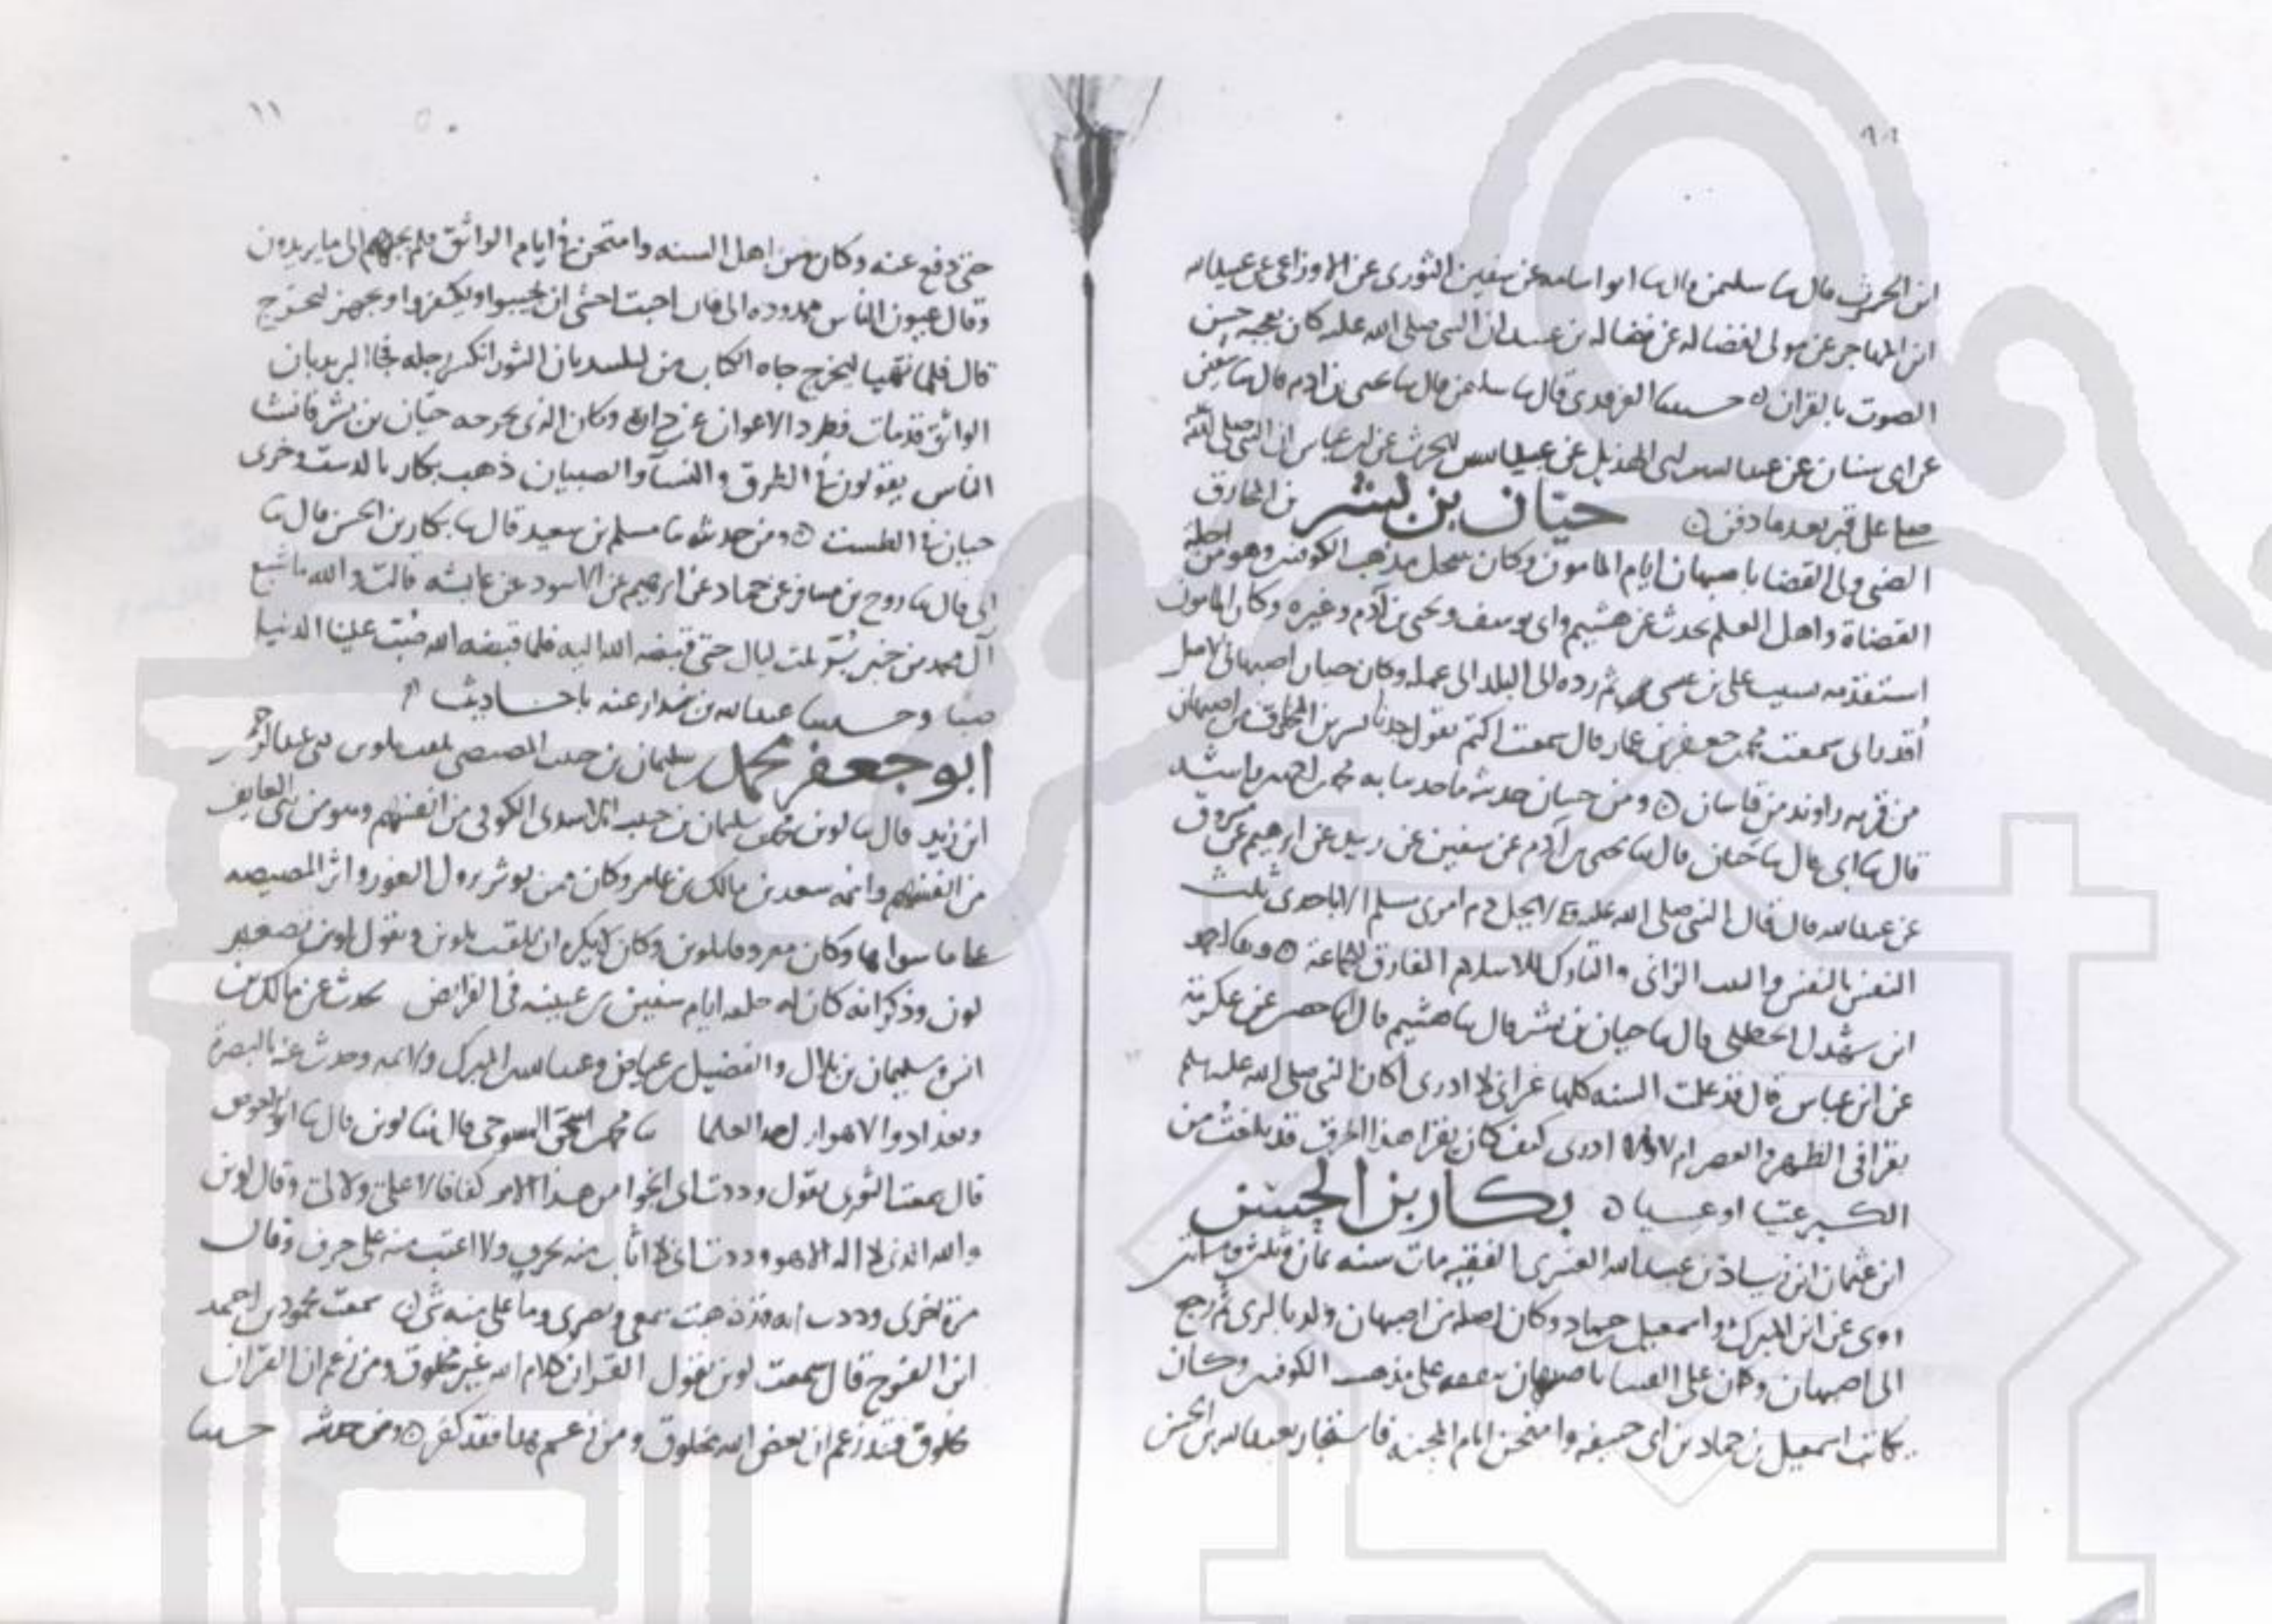 ابن الحرث قال ثنا سليمن قال ثنا ابو اسامه عن سفين الثورى عن الاوزاعى عن عبيدالله
ابن المهاجر عن مولى لفضاله عن فضاله بن عبيد ان النبى صلى الله عليه كان يعجبه حسن
الصوت بالقران ه حدثنا قال ثنا سليمن قال ثنا يحيى بن ادم قال ثنا سفين
عن ابى سنان عن عبدالله بن ابى الهذيل عن عبدالله بن الحرث عن ابن عباس ان النبى صلى الله
صلى على قبر بعد ما دفن ه حيّان بن بشر بن المخارق
الضبى ولى القضا باصبهان ايام المامون وكان ينتحل مذهب الكوفيين وهو من اجله
القضاة واهل العلم يحدث عن هشيم وابى يوسف ويحيى بن آدم وغيره وكان المامون
بسبب على بن عيسى ثم رده الى البلد الى عمله وكان حيان اصبهانى الاصل
سمعت محمد بن جعفر بن عمار قال سمعت اكثم يقول جدنا بشر بن المخارق من اصبهان
من قريه راوند من قاسان ه ومن حسان حديثه ما حدثنا به محمد بن احمد بن راشد
قال ثنا ابى قال ثنا حيان قال ثنا يحيى بن آدم عن سفين عن زبيد عن ابرهيم عن مسروق
عن عبدالله قال قال النبى صلى الله عليه لا يحل دم امرى مسلم الا باحدى ثلث
النفس بالنفس والثيب الزانى والتارك للاسلام المفارق للجماعة ه وثنا احمد
ابن الحنظلى قال ثنا حيان بن بشر قال ثنا هشيم قال ثنا حصين عن عكرمة
عن ابن عباس قال قد علمت السنه كلها غير انى لا ادرى اكان النبى صلى الله عليه سلم
يقرا فى الظهر والعصر ام لا ولا ادرى كيف كان يقرا هذا الحرف قد بلغت من
الكبر عتيا او عسيا ه بكار بن الحسن
ابن عثمان ابن زياد بن عبدالله العنبرى الفقيه مات سنه ثمان وثلثين ومائتين
روى عن ابن المبرك واسمعيل بن حماد وكان اصله من اصبهان ولد بالرى ثم رجع
الى اصبهان وكان على الفتيا باصبهان على مذهب الكوفيين وكان
كاتب اسمعيل بن حماد بن ابى حنيفه وامتحن ايام المحنه فاستجار بعبدالله بن الحسن
حتى دفع عنه وكان من اهل السنه وامتحن فى ايام الواثق فلم يجبهم الى ما يريدون
وقال عيون الناس ممدوده الى فان اجبت اخشى ان يجيبوا ويكفروا وتجهز ليخرج
قال فلما تهيا ليخرج جاه الكتاب رجله فجا البريد بان
الواثق قد مات فطرد الاعوان عن داره وكان الذى يخرجه حيّان بن بشر فانشا
الناس يقولون فى الطرق والنسآ والصبيان ذهب بكار بالدست وخرى
حيان فى الطست ه ومن حديثه ثنا مسلم بن سعيد قال ثنا بكار بن الحسن قال ثنا
ابى قال ثنا روح بن مسافر عن حماد عن ابرهيم عن الاسود عن عايشه قالت والله ما شبع
آل محمد من خبز بُرّ ثلث ليال حتى قبضه الله اليه فلما قبضه الله صُبّت علينا الدنيا
صبًّا وحدثنا عبدالله بن بندار عنه باحاديث
ابو جعفر محمد بن سليمان بن حبيب المصيصى يلقب بلوين ثنى عبدالرحمن
ابن زيد قال ثنا لوين محمد بن سليمان بن حبيب الاسدى الكوفى من انفسهم
من انفسهم وانه سعد بن مالك بن عامر وكان ممن يوثر نزول الثغور واثر المصيصه
على ما سواها وكان معروفا بلوين وكان لا يكره ان يلقب بلوين ويقول لوين تصغير
لون وذكر انه كان له حلقه ايام سفين بن عيينه فى الفرائض يحدث عن مالك بن
انس وسليمان بن بلال والفضيل بن عياض وعبدالله بن المبرك والايمه وحدث عنه بالبصرة
وبغداد والاهواز العلما ثنا محمد بن اسحق قال ثنا لوين قال ثنا ابو الاحوص
قال سمعت الثورى يقول وددت انى انجوا من هذا الامر كفافا لا على ولا لى وقال لوين
والله الذى لا اله الا هو وددت انى لا اثاب منه بحرف ولا اعتب منه على حرف وقال
مرة اخرى وددت انه قد ذهب سمعى وبصرى وما على منه شى ه سمعت محمود بن احمد
ابن الفرج قال سمعت لوين يقول القرآن كلام الله غير مخلوق ومن زعم ان القرآن
مخلوق فقد زعم ان بعض الله مخلوق ومن زعم هذا فقد كفر ه ومن حديثه حدثنا